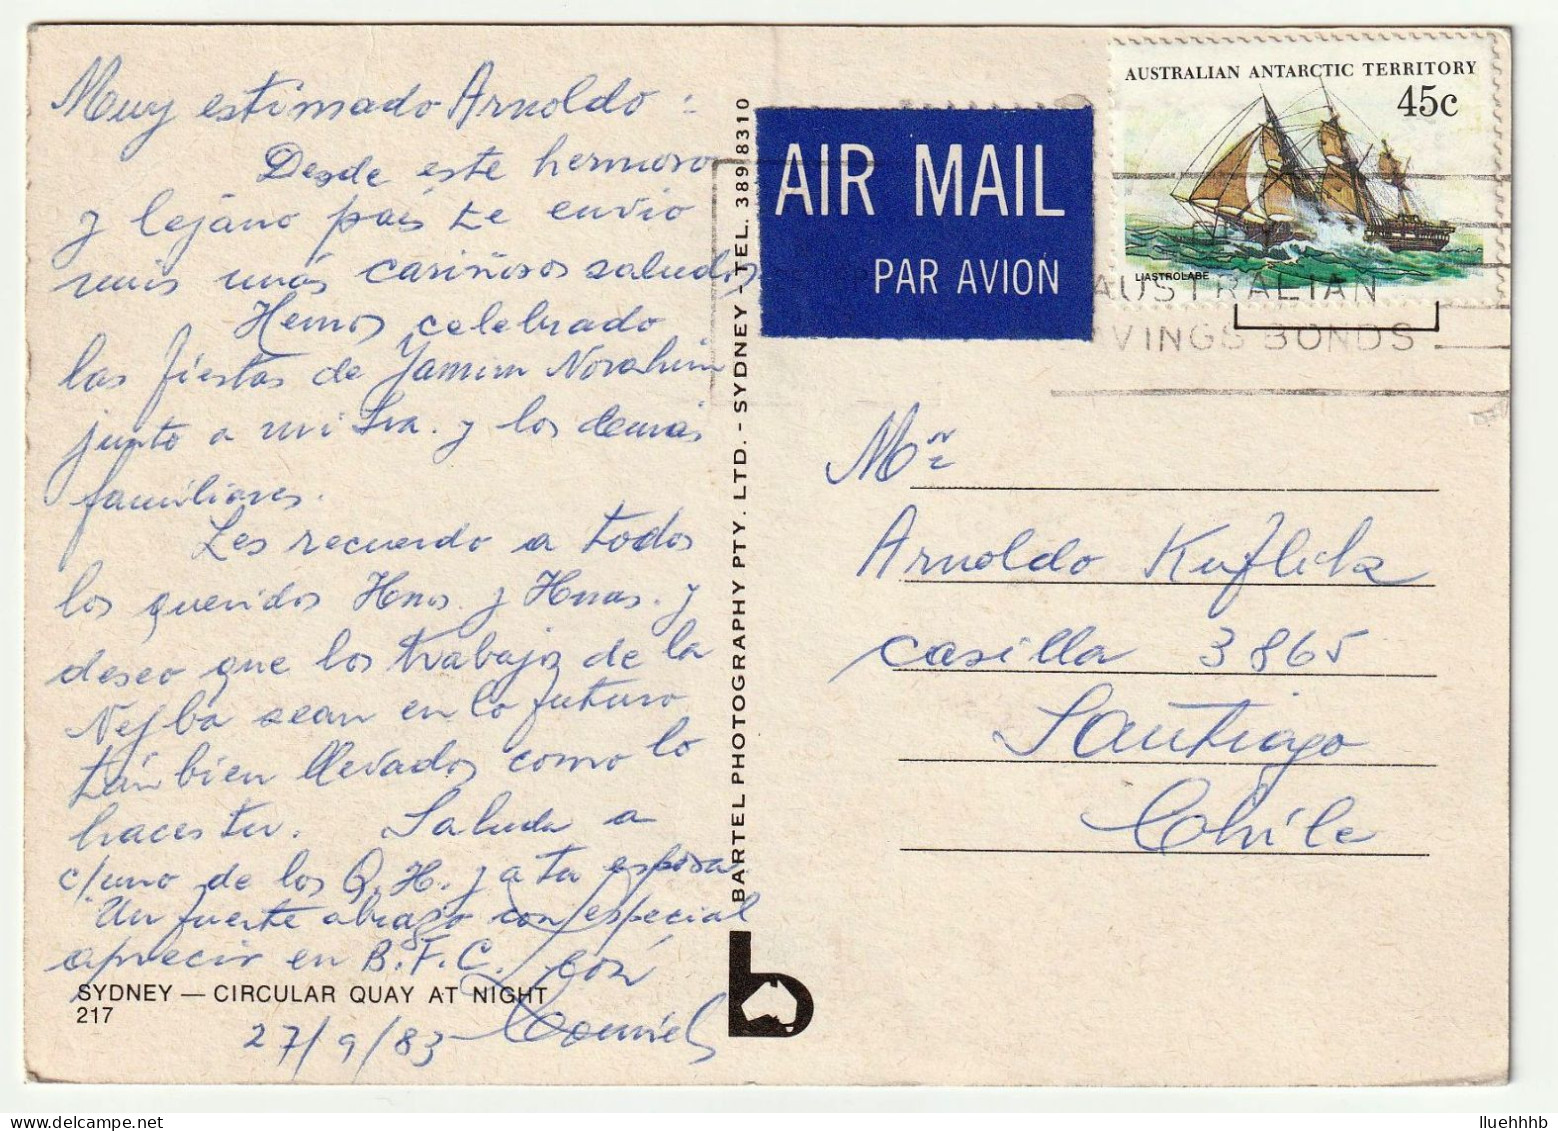 Muy estimado Arnoldo :
Desde este hermoso
y lejano país te envio
mis más cariñosos saludos
Hemos celebrado
las fiestas de Yamim Norahim
junto a mi Sra. y los demás
familiares.
Les recuerdo a todos
los queridos Hnos. y Hnas. y
deseo que los trabajos de la
sean en lo futuro
también llevados como lo
haces tu. Saluda a
c/uno de los Q. H. y a tu esposa
Un fuerte abrazo con especial
aprecio en B.F.C.
SYDNEY — CIRCULAR QUAY AT NIGHT
217
27/9/83
BARTEL PHOTOGRAPHY PTY. LTD. - SYDNEY - TEL. 389 8310
b
AIR MAIL
PAR AVION
AUSTRALIAN ANTARCTIC TERRITORY
45c
L'ASTROLABE
AUSTRALIAN
SAVINGS BONDS
Mr
Arnoldo Kuflik
casilla 3865
Santiago
Chile
lluehhhb